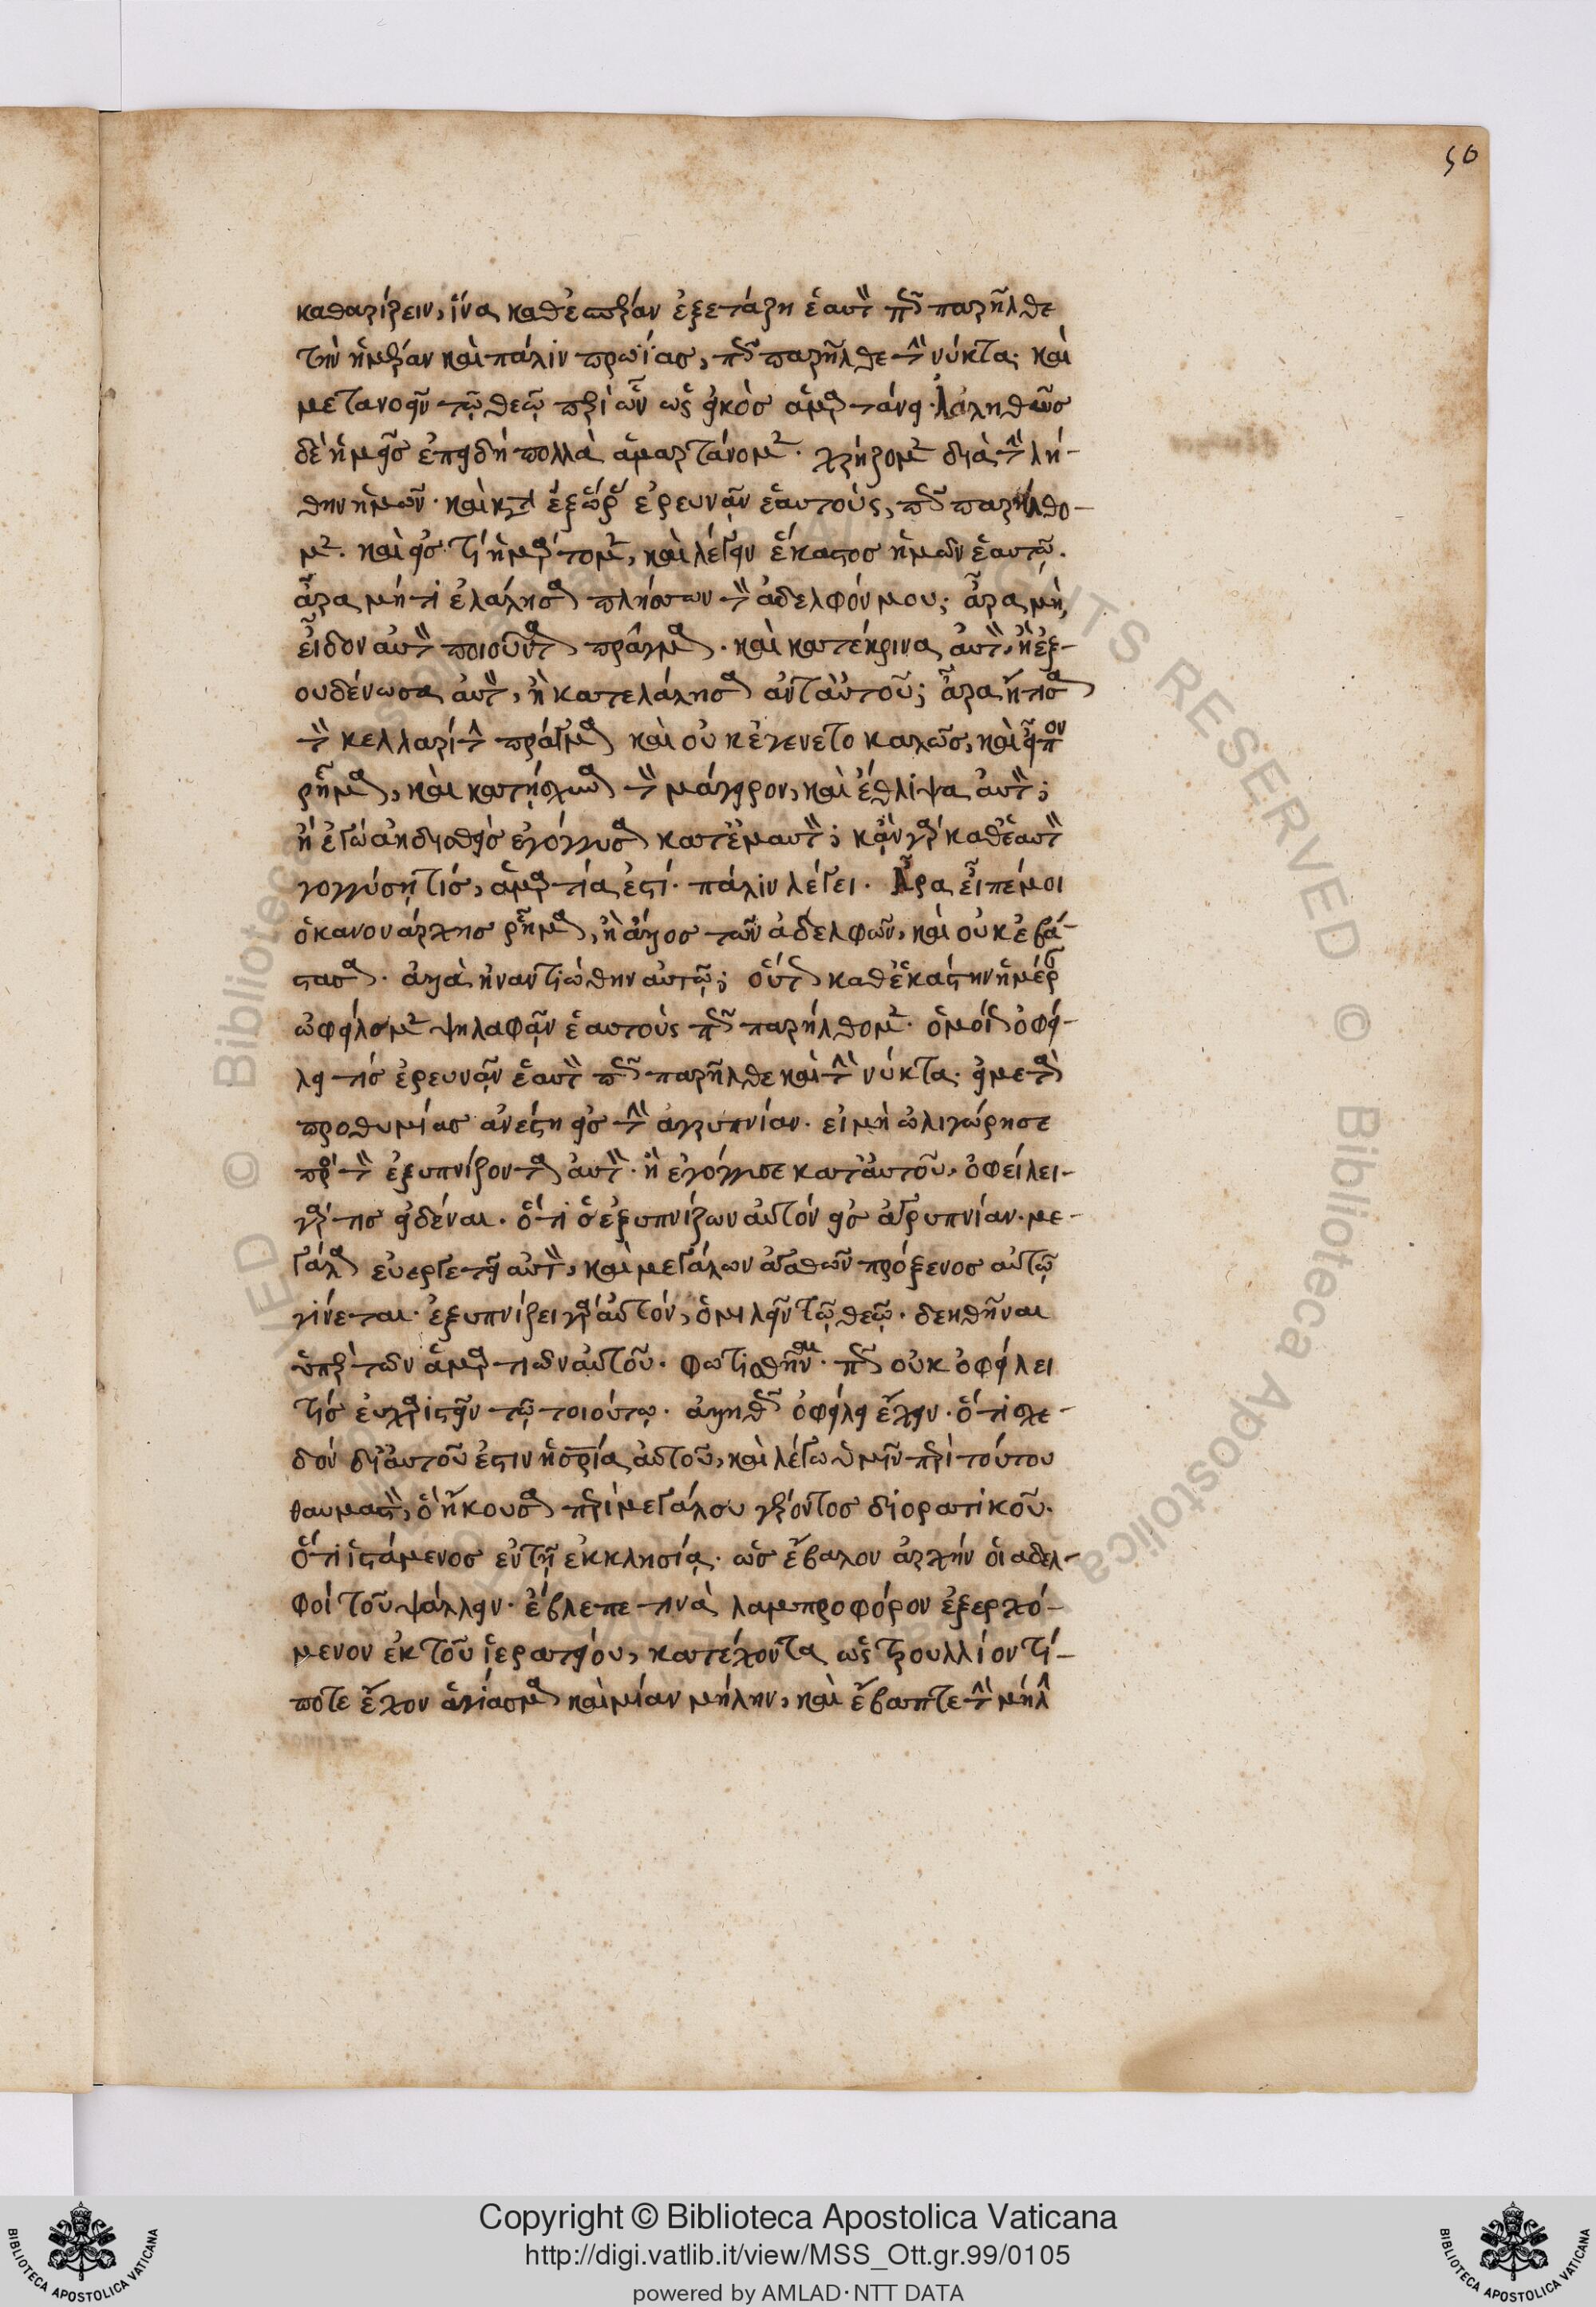 50
καθαρίζειν, ἵνα καθ' ἑσπέραν ἐξετάζη ἑαυτὸν πῶς παρῆλθε
τὴν ἡμέραν καὶ πάλιν πρωΐας, πῶς παρῆλθε τὴν νύκτα. καὶ
μετανοεῖν τῷ θεῷ περὶ ὧν ὡς εἰκὸς ἁμαρτάνει. ἀληθῶς
δὲ ἡμεῖς ἐπειδὴ πολλὰ ἁμαρτάνομεν. χρήζομεν διὰ τὴν λή-
θην ἡμῶν. καὶ κατὰ ἓξ ὥρας ἐρευνᾶν ἑαυτούς, πῶς παρήλθο-
μεν. καὶ εἰς τί ἡμάρτομεν, καὶ λέγειν ἕκαστος ἡμῶν ἑαυτῷ.
ἆρα μή τι ἐλάλησα πλήσσων τὸν ἀδελφόν μου; ἆρα μὴ,
εἶδον αὐτὸν ποιοῦντα πρᾶγμα. καὶ κατέκρινα αὐτόν, ἢ ἐξ-
ουδένωσα αὐτόν, ἢ κατελάλησα αὐτοῦ; ἆρα ᾔτησα
τὸν κελλαρίτην πρᾶγμα καὶ οὐκ ἐγένετο καλῶς, καὶ εἶπον
ῥῆμα, καὶ κατῄσχυνα τὸν μάγειρον, καὶ ἔθλιψα αὐτόν;
ἢ ἐγὼ ἀηδισθεὶς ἐγόγγυσα κατ' ἐμαυτόν; κἂν γὰρ καθ' ἑαυτὸν
γογγύσῃ τίς, ἁμαρτία ἐστί. πάλιν λέγει. Ἆρα εἶπέ μοι
ὁ κανονάρχης ῥῆμα, ἢ ἄλλος τῶν ἀδελφῶν, καὶ οὐκ ἐβά-
στασα. ἀλλὰ ἠναντιώθην αὐτῷ; οὕτως καθ' ἑκάστην ἡμέραν
ὠφείλομεν ψηλαφᾶν ἑαυτοὺς πῶς παρήλθομεν. ὁμοίως ὀφεί-
λει τίς ἐρευνᾶν ἑαυτὸν πῶς παρῆλθε καὶ τὴν νύκτα. εἰ μετὰ
προθυμίας ἀνέστη εἰς τὴν ἀγρυπνίαν. εἰ μὴ ὠλιγώρησε
πρὸς τὸν ἐξυπνίζοντα αὐτόν. ἢ ἐγόγγυσε κατ' αὐτοῦ, ὀφείλει-
γάρ τις εἰδέναι. ὅτι ὁ ἐξυπνίζων αὐτόν εἰς ἀγρυπνίαν. με-
γάλα εὐεργετεῖ αὐτόν, καὶ μεγάλων ἀγαθῶν πρόξενος αὐτῷ
γίνεται. ἐξυπνίζει γὰρ αὐτόν, ὁμιλεῖν τῷ θεῷ. δεηθῆναι
ὑπὲρ τῶν ἁμαρτιῶν αὐτοῦ. φωτισθῆναι. πῶς οὐκ ὀφείλει
τίς εὐχαριστεῖν τῷ τοιούτῳ. ἀληθῶς ὀφείλει ἔχειν. ὅτι σχε-
δόν δι' αὐτοῦ ἐστιν ἡ σρία αὐτοῦ, καὶ λέγω ὑμῖν περὶ τούτου
θαυμαστόν, ὃ ἤκουσα περὶ μεγάλου γέροντος διορατικοῦ.
ὅτι ἱστάμενος ἐν τῇ ἐκκλησίᾳ. ὡς ἔβαλον ἀρχὴν οἱ αδελ-
φοί τοῦ ψάλλειν. ἔβλεπε τινὰ λαμπροφόρον ἐξερχό-
μενον ἐκ τοῦ ἱερατείου, κατέχοντα ὡς τρουλλίον τί-
ποτε ἔχον ἁγίασμα καὶ μίαν μήλην, καὶ ἔβαπτε τὴν μήλην
Copyright © Biblioteca Apostolica Vaticana
http://digi.vatlib.it/view/MSS_Ott.gr.99/0105
powered by AMLAD·NTT DATA